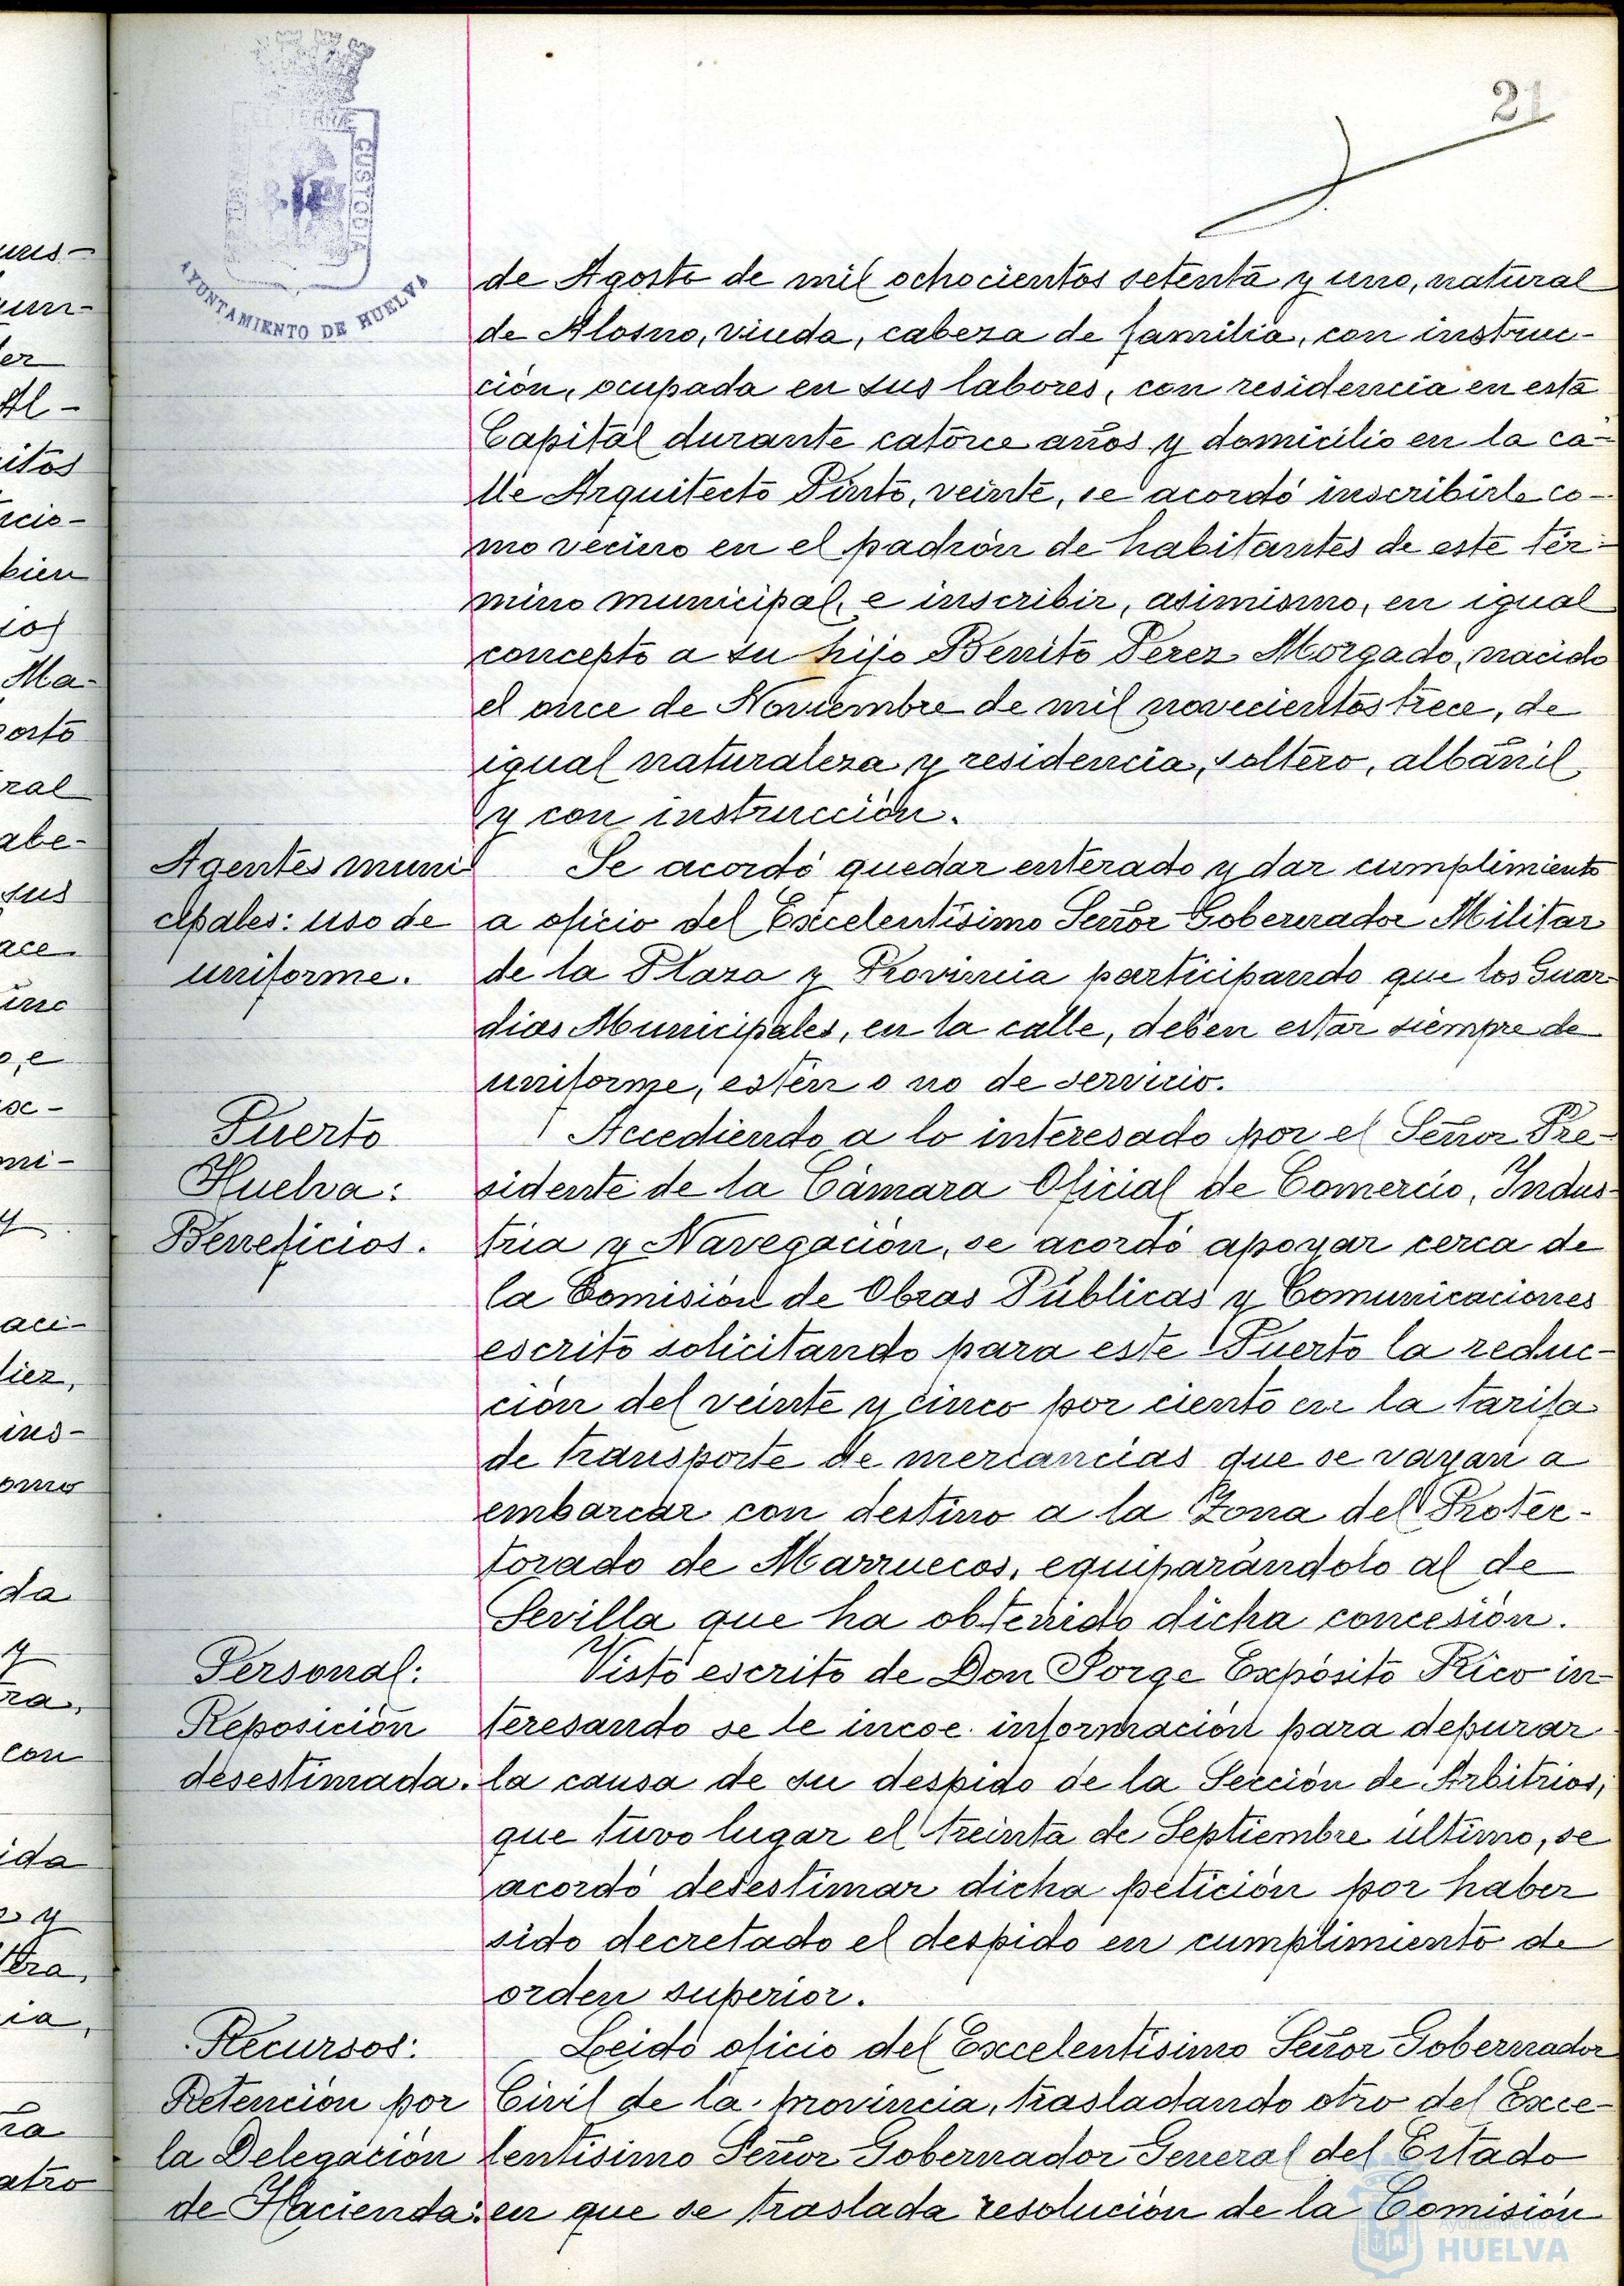 21
CUSTODIA
AYUNTAMIENTO DE HUELVA
de Agosto de mil ochocientos setenta y uno, natural
de Alosno, viuda, cabeza de familia, con instruc-
ción, ocupada en sus labores, con residencia en esta
Capital durante catorce años y domicilio en la ca-
lle Arquitecto Pinto, veinte, se acordó inscribirle co-
mo vecino en el padrón de habitantes de este tér-
mino municipal, e inscribir, asimismo, en igual
concepto a su hijo Benito Perez Morgado, nacido
el once de Noviembre de mil novecientos trece, de
igual naturaleza y residencia, soltero, albañil
y con instrucción.
Agentes muni
cipales: uso de
uniforme.
Se acordó quedar enterado y dar cumplimiento
a oficio del Excelentísimo Señor Gobernador Militar
de la Plaza y Provincia participando que los Guar
dias Municipales, en la calle, deben estar siempre de
uniforme, estén o no de servicio.
Puerto
Huelva:
Beneficios.
Accediendo a lo interesado por el Señor Pre-
sidente de la Cámara Oficial de Comercio, Indus-
tria y Navegación, se acordó apoyar cerca de
la Comisión de Obras Públicas y Comunicaciones
escrito solicitando para este Puerto la reduc-
ción del veinte y cinco por ciento en la tarifa
de transporte de mercancías que se vayan a
embarcar con destino a la Zona del Protec-
torado de Marruecos, equiparándolo al de
Sevilla que ha obtenido dicha concesión.
Personal:
Reposición
desestimada.
Visto escrito de Don Jorge Expósito Rico in-
teresando se le incoe información para depurar
la causa de su despido de la Sección de Arbitrios,
que tuvo lugar el treinta de Septiembre último, se
acordó desestimar dicha petición por haber
sido decretado el despido en cumplimiento de
orden superior.
Recursos:
Retención por
la Delegación
de Hacienda:
Leido oficio del Excelentísimo Señor Gobernador
Civil de la provincia, trasladando otro del Exce-
lentísimo Señor Gobernador General del Estado
en que se traslada resolución de la Comisión
Ayuntamiento de
HUELVA